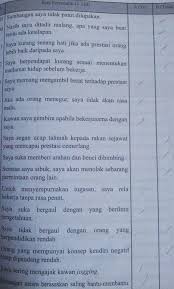 Sumbangan saya tidak patut dilupakan.
Nasib saya ditada malang, apa yang saya buat
pasti ada kesilapan.
Saya kurang senang hati jika ada prestasi orang
lebih baik daripada saya.
Saya berpendapat kurang sesuai menentukan
matlamat hidup sebelum bekerja.
Saya memang mengambil berat terhadap prestasi
saya.
Jika ada orang menegur, saya tidak akan rasa
malu.
Kawan saya gembira apabila bekerjasama dengan
saya.
Saya segan ucap tahniah kepada rakan sejawat
yang mencapai prestasi cemerlang.
Saya suka memberi arahan dan benci dibimbing.
Semasa saya sibuk, saya akan menolak sebarang
permintaan orang lain.
Untuk menyempurnakan tugasan, saya rela
bekerja tanpa rasa penat.
Saya suka bergaul dengan yang berilmu
pengetahuan.
Saya tidak bergaul dengan orang yang
berpendidikan rendah.
Orang yang mempunyai konsep kendiri negatif
dipandang rendah.
Saya sering mengajak kawan jogging
saling bantu-membantu